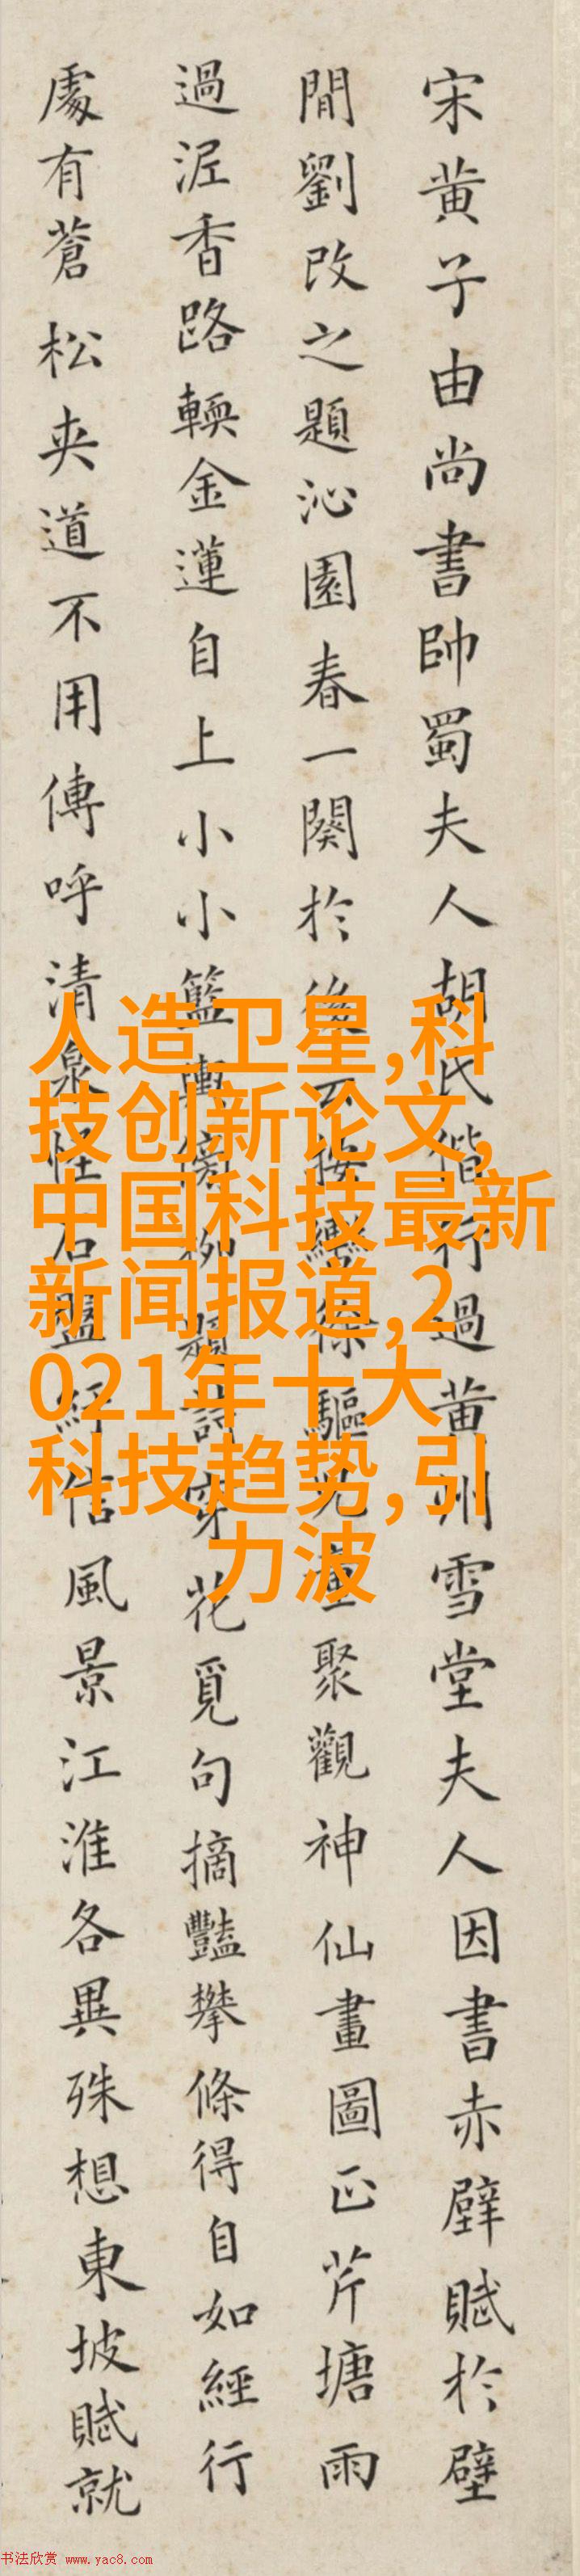 宋黄子由尚書帥蜀夫人胡氏偕行過黄州雪堂夫人因書赤壁賦於壁
間劉改之題沁園春一闋於後云按轡徐驅兒童聚觀神仙畫圖正芹塘雨
過泥香路輭金蓮自上小小籃輿傍柳題詩穿花覓句摘豔攀條得自如經行
處有蒼松夾道不用傳呼清泉怪石盤紆信風景江淮各異殊想東坡賦就
人造卫星,科
技创新论文,
中国科技最新
新闻报道,2
021年十大
科技趋势,引
力波
书法欣赏 www.yac8.com